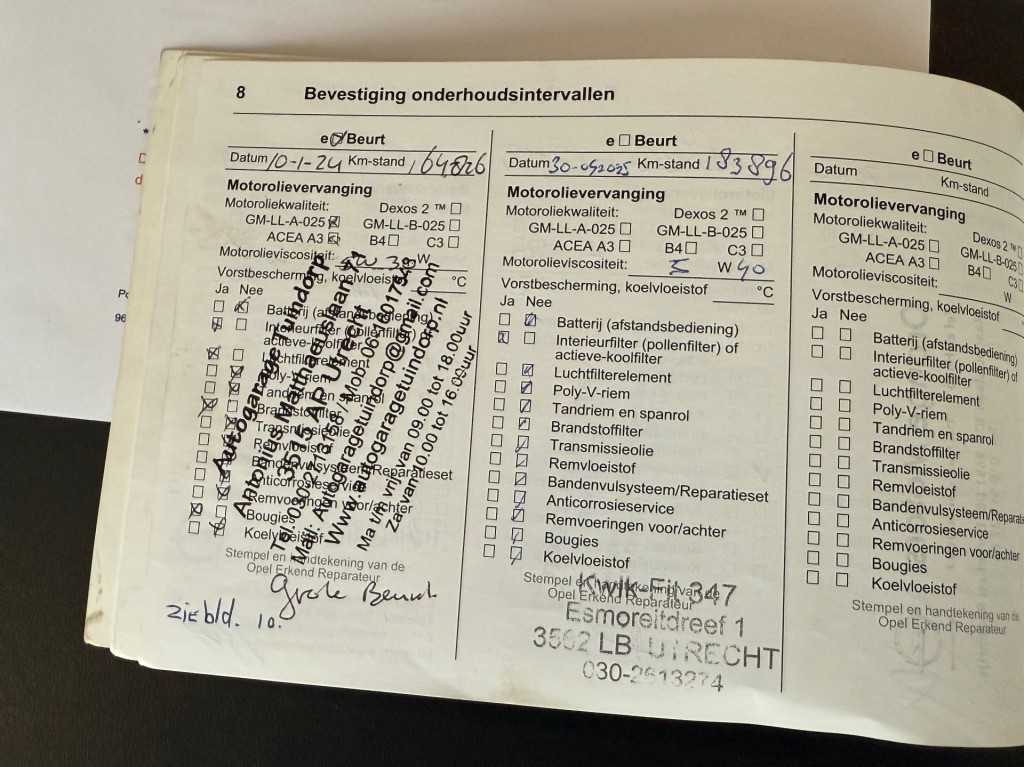 8 Bevestiging onderhoudsintervallen
e Beurt
Datum 10-1-24 Km-stand 164826
Motorolievervanging
Motoroliekwaliteit: Dexos 2 ™
GM-LL-A-025 GM-LL-B-025
ACEA A3 B4 C3
Motorolieviscositeit: W
Vorstbescherming, koelvloeistof °C
Ja Nee
Batterij (afstandsbediening)
Interieurfilter (pollenfilter) of
actieve-koolfilter
Luchtfilterelement
Poly-V-riem
Tandriem en spanrol
Brandstoffilter
Transmissieolie
Remvloeistof
Bandenvulsysteem/Reparatieset
Anticorrosieservice
Remvoeringen voor/achter
Bougies
Koelvloeistof
Stempel en handtekening van de
Opel Erkend Reparateur
Autogarage Tuindorp
Antonius Matthaeuslaan 71
3515 AP Utrecht
Mail: Autogaragetuindorp@gmail.com
Www.autogaragetuindorp.nl
Ma t/m vrij van 09.00 tot 18.00uur
Zat van 10.00 tot 16.00uur
Grote Beurt
ZIE bld. 10.
e Beurt
Datum 30-04-2025 Km-stand 183896
Motorolievervanging
Motoroliekwaliteit: Dexos 2 ™
GM-LL-A-025 GM-LL-B-025
ACEA A3 B4 C3
Motorolieviscositeit: 5 W 40
Vorstbescherming, koelvloeistof °C
Ja Nee
Batterij (afstandsbediening)
Interieurfilter (pollenfilter) of
actieve-koolfilter
Luchtfilterelement
Poly-V-riem
Tandriem en spanrol
Brandstoffilter
Transmissieolie
Remvloeistof
Bandenvulsysteem/Reparatieset
Anticorrosieservice
Remvoeringen voor/achter
Bougies
Koelvloeistof
Stempel en handtekening van de
Opel Erkend Reparateur
Kwik-Fit 347
Esmoreitdreef 1
3562 LB UTRECHT
030-2613274
e Beurt
Datum Km-stand
Motorolievervanging
Motoroliekwaliteit: Dexos 2 ™
GM-LL-A-025 GM-LL-B-025
ACEA A3 B4 C3
Motorolieviscositeit: W
Vorstbescherming, koelvloeistof
Ja Nee
Batterij (afstandsbediening)
Interieurfilter (pollenfilter) of
actieve-koolfilter
Luchtfilterelement
Poly-V-riem
Tandriem en spanrol
Brandstoffilter
Transmissieolie
Remvloeistof
Bandenvulsysteem/Repara
Anticorrosieservice
Remvoeringen voor/achter
Bougies
Koelvloeistof
Stempel en handtekening van de
Opel Erkend Reparateur